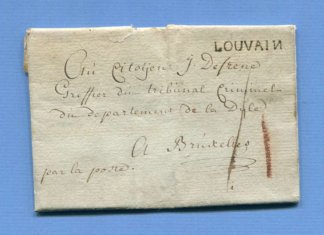 LOUVAIN
Au Citoyen J Defrene
Greffier du tribunal Criminel
du departement de la Dyle
A Bruxelles
par la poste.